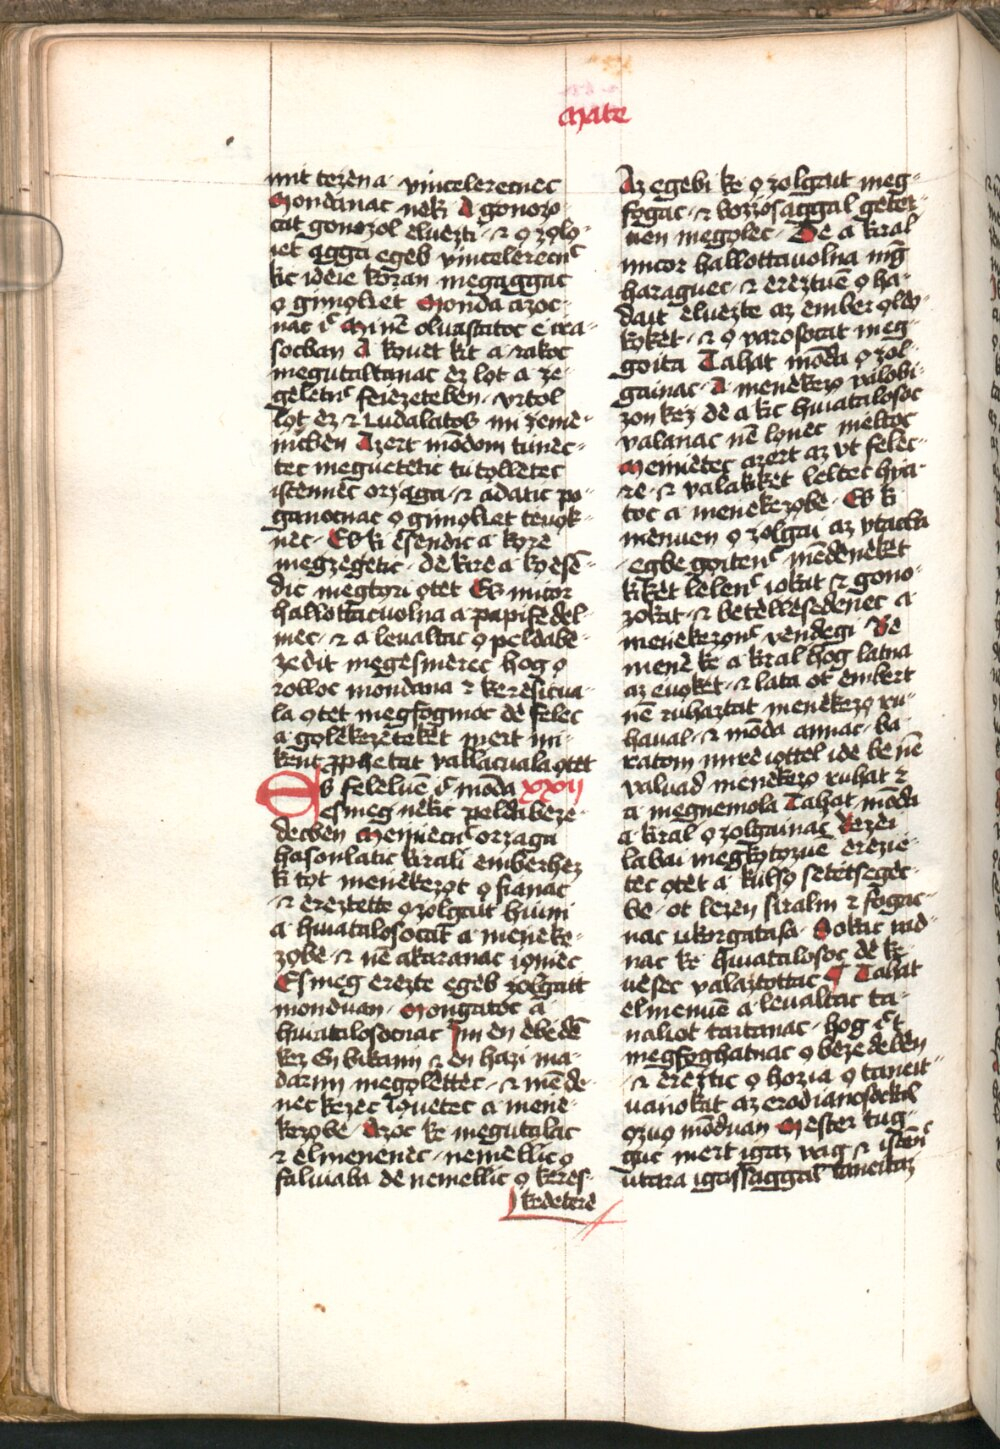 Mate
mit tezėn a vincelerecnec
Mondanac nėki A gonozo-
cat gonozol elvezti · ⁊ o zolo-
iet agga egėb vincelerecnc
kic ideie koran megaggac
o gimolčet Monda azoc-
nac ic Mi nē olvastatoc e ira-
socban A kovet kit a rakoc
megutaltanac ez lot a ze-
geletnc feiezeteben · vrtol
lot ez ⁊ čudalatos mi zeme-
nicben Azert mōdom tünec-
tec meguetetic tu tolletec
istennec orzaga · ⁊ adatic po-
ganocnac o gimolčet tevok-
nec · Es ki esendic a kore
megzegetic · de kire a ko ese-
dic megtori otet Es micor
hallottacvolna a papi fedel-
mec · ⁊ a levaltac o peldabe-
zedit megesmerec hog o
rolloc mondana ⁊ keresicva-
la otet megfogniac de felec
a golekezeteket mert mi-
kent prophetat vallacuala otet
Es felelven ic mōda xxij
esmeg nekic peldabeze-
decben Mennecnc orzaga
hasonlatic kirali emberhez
ki tot menekezot o fianac
⁊ ereztette o zolgait hivni
a hivatalosocat a meneke-
zobe ⁊ nē akaranac ioniec
Esmeg erezte egeb zolgait
mondvan · Mongatoc a
hivatalosocnac Im en ebede
kez En bikaim ⁊ en hazi ma-
darim megolettec · ⁊ mēde-
nec kezec Iovetec a mene-
kezobe Azoc ke megutalac
⁊ elmenenec · nemellic o
faluiaba de nemellic o keres-
kedetere
Az egebi ke o zolgait meg-
fogac · ⁊ bozzosaggal geter-
uen megolec · De a kiral
micor hallottauolna mg
haraguec · ⁊ ereztuē o ha-
dait elvezte az ember oldo-
koket · ⁊ o varosocat meg-
goita Tahat mōda o zol-
gainac · A menekezo valobi-
zon kez de a kic hivatalosoc
valanac nē lonec meltoc
Meňňetec azert az vt felec-
re · ⁊ valakiket leltec hia-
toc a menekezobe · Es ki
menuen o zolgai az vtacba
egbe goitenc mēdeneket
kiket lelenc iokat ⁊ gono-
zokat · ⁊ betellesedenec a
menekezonc vendegi Be
mene ke a kiral hog latna
az evoket · ⁊ lata ot embert
nē ruhaztat menekezo ru-
haual · ⁊ mōda annac · ba-
ratom mire iottel ide be nē
valuad menekezo ruhat ⁊
a megnemola Tahat mōda
a kiral o zolgainac kezei
labai megkotozue erezie-
tec otet a kulso setetsegec-
be · ot lezen siralm ⁊ fogac-
nac čikorgatasa · Sokac vad-
nac ke hivatalosoc de ke-
vesec valaztottac ¶ Tahat
elmenuē a levaltac ta-
naliot tartanac · hog ict
megfoghatnac o bezedeben
⁊ ereztic o hozia o taneit-
uaňokat az erodianosockal
ozuo mōduan Mester tug-
guc mert igaz vag ⁊ istēnc
vtara igassaggal taneitaz